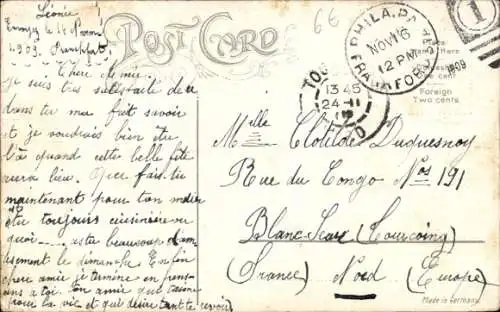 Léonie
Envoyé le 16 Novem
1909. Frankfort
Chère amie
Je suis très satisfaite de ce
dans tu me fait savoir
et je voudrais bien être
là quand cette belle fête
aura lieu. Que fais-tu
maintenant pour ton métier
es tu toujours cuisinière ou
quoi as tu beaucoup d'am-
usement le dimanche Enfin
chère amie je termine en pensa-
ns a toi. Ton amie qui t'aime
pour la vie et qui désire tant te revoir
POST CARD
6E
PHILA. PA
NOV 16
12 PM
1909
FRANKFORD
1
Place
Stamp Here
One cent
Foreign
Two cents
TOU
13 45
24 - 11
NORD
Mlle Clotilde Duquesnoy
Rue du Congo Nos 191
Blanc-Seau (Tourcoing)
(France) Nord (Europe)
Made in Germany